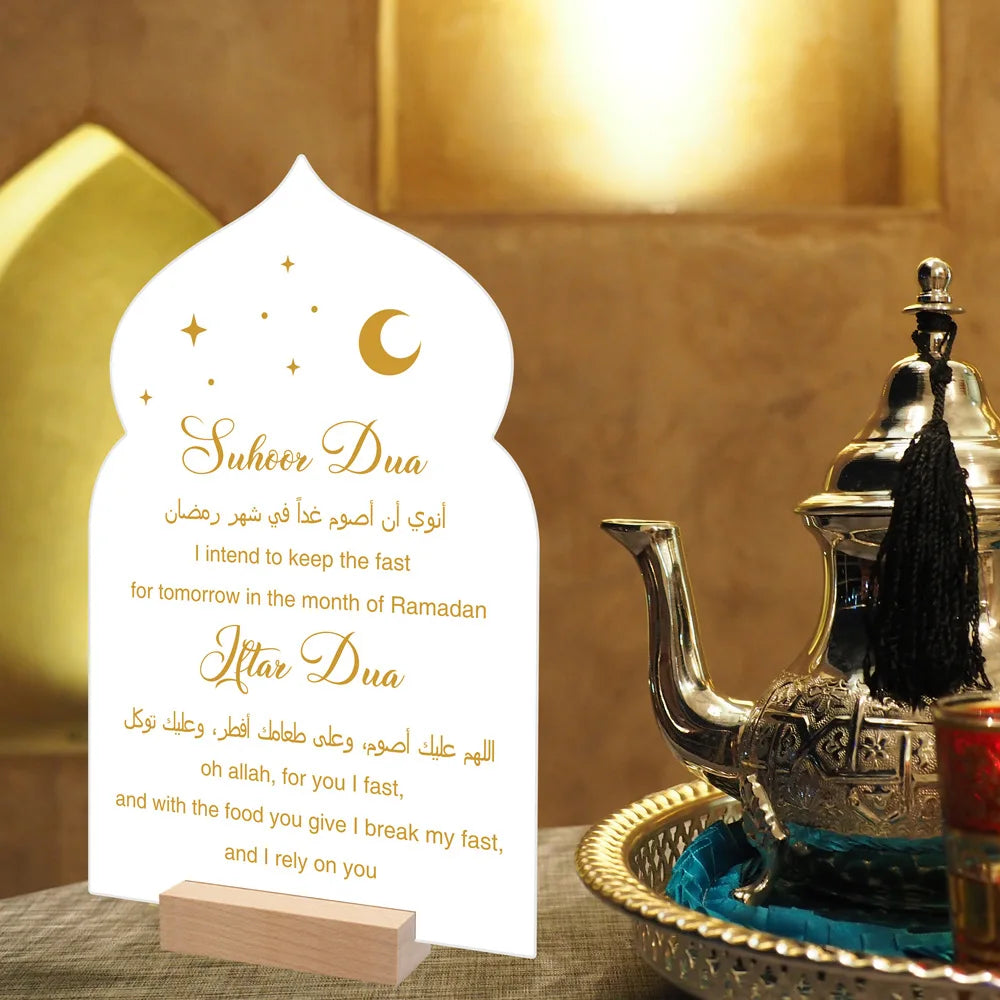 Suhoor Dua
أنوي أن أصوم غداً في شهر رمضان
I intend to keep the fast
for tomorrow in the month of Ramadan
Iftar Dua
اللهم عليك أصوم، وعلى طعامك أفطر، وعليك توكل
oh allah, for you I fast,
and with the food you give I break my fast,
and I rely on you